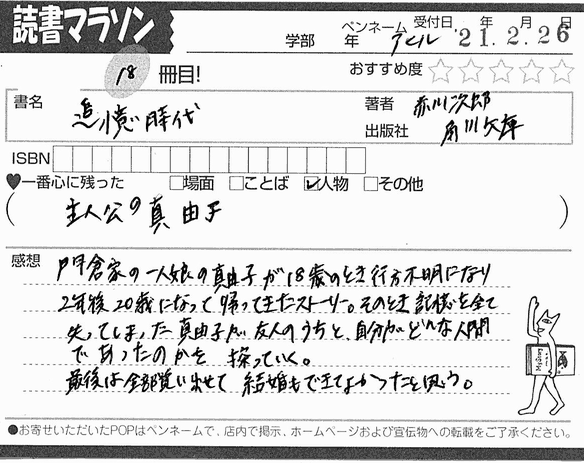 読書マラソン
学部 年 ペンネーム アヒル 受付日 '21年2月26日
18 冊目!
おすすめ度 ☆☆☆☆☆
書名 追憶時代
著者 赤川次郎
出版社 角川文庫
ISBN
♥一番心に残った □場面 □ことば ☑人物 □その他
( 主人公の真由子 )
感想 門倉家の一人娘の真由子が18歳のとき行方不明になり
2年後20歳になって帰ってきたストーリー。そのとき記憶を全て
失ってしまった真由子が友人のうちと、自分がどんな人間
であったのかを 探っていく。
最後は全部覚い出せて 結婚もできてよかったと思う。
●お寄せいただいたPOPはペンネームで、店内で掲示、ホームページおよび宣伝物への転載をご了承ください。